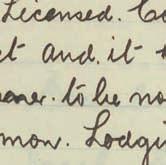 Licensed.
and. it
to be no
mon. Lodgi